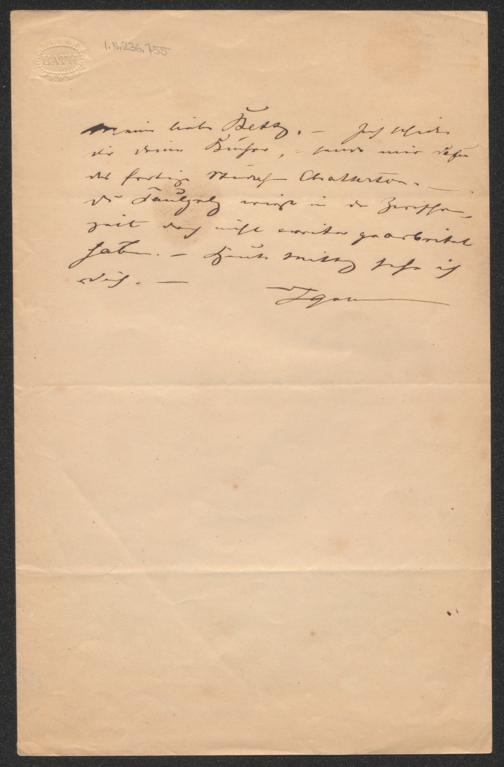 BATH
I.N.236.755
Mein liebe Betty. — Ich schicke
dir deine Bücher, – sende mir dafür
das fertige Stück Chatterton. —
Du wirst in der Zwischen-
zeit doch nicht weiter gearbeitet
haben. — Heute Mittag sehe ich
dich. —